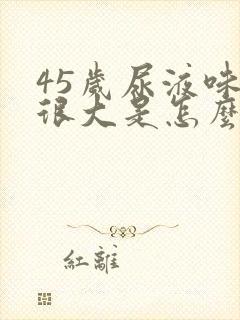 45歲尿液味
很大是怎麼
紅離